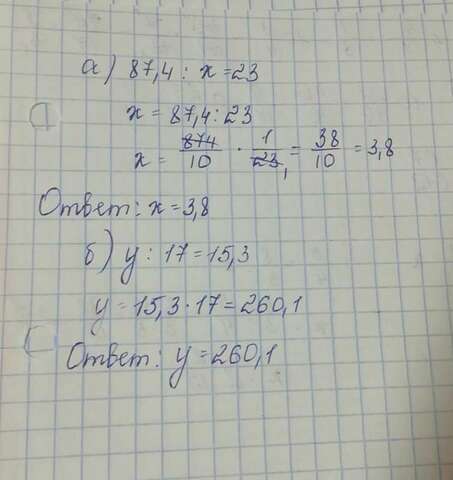 а) 87,4 : x = 23
x = 87,4 : 23
x = 874/10 · 1/23 1 = 38/10 = 3,8
Ответ: x = 3,8
б) y : 17 = 15,3
y = 15,3 · 17 = 260,1
Ответ: y = 260,1